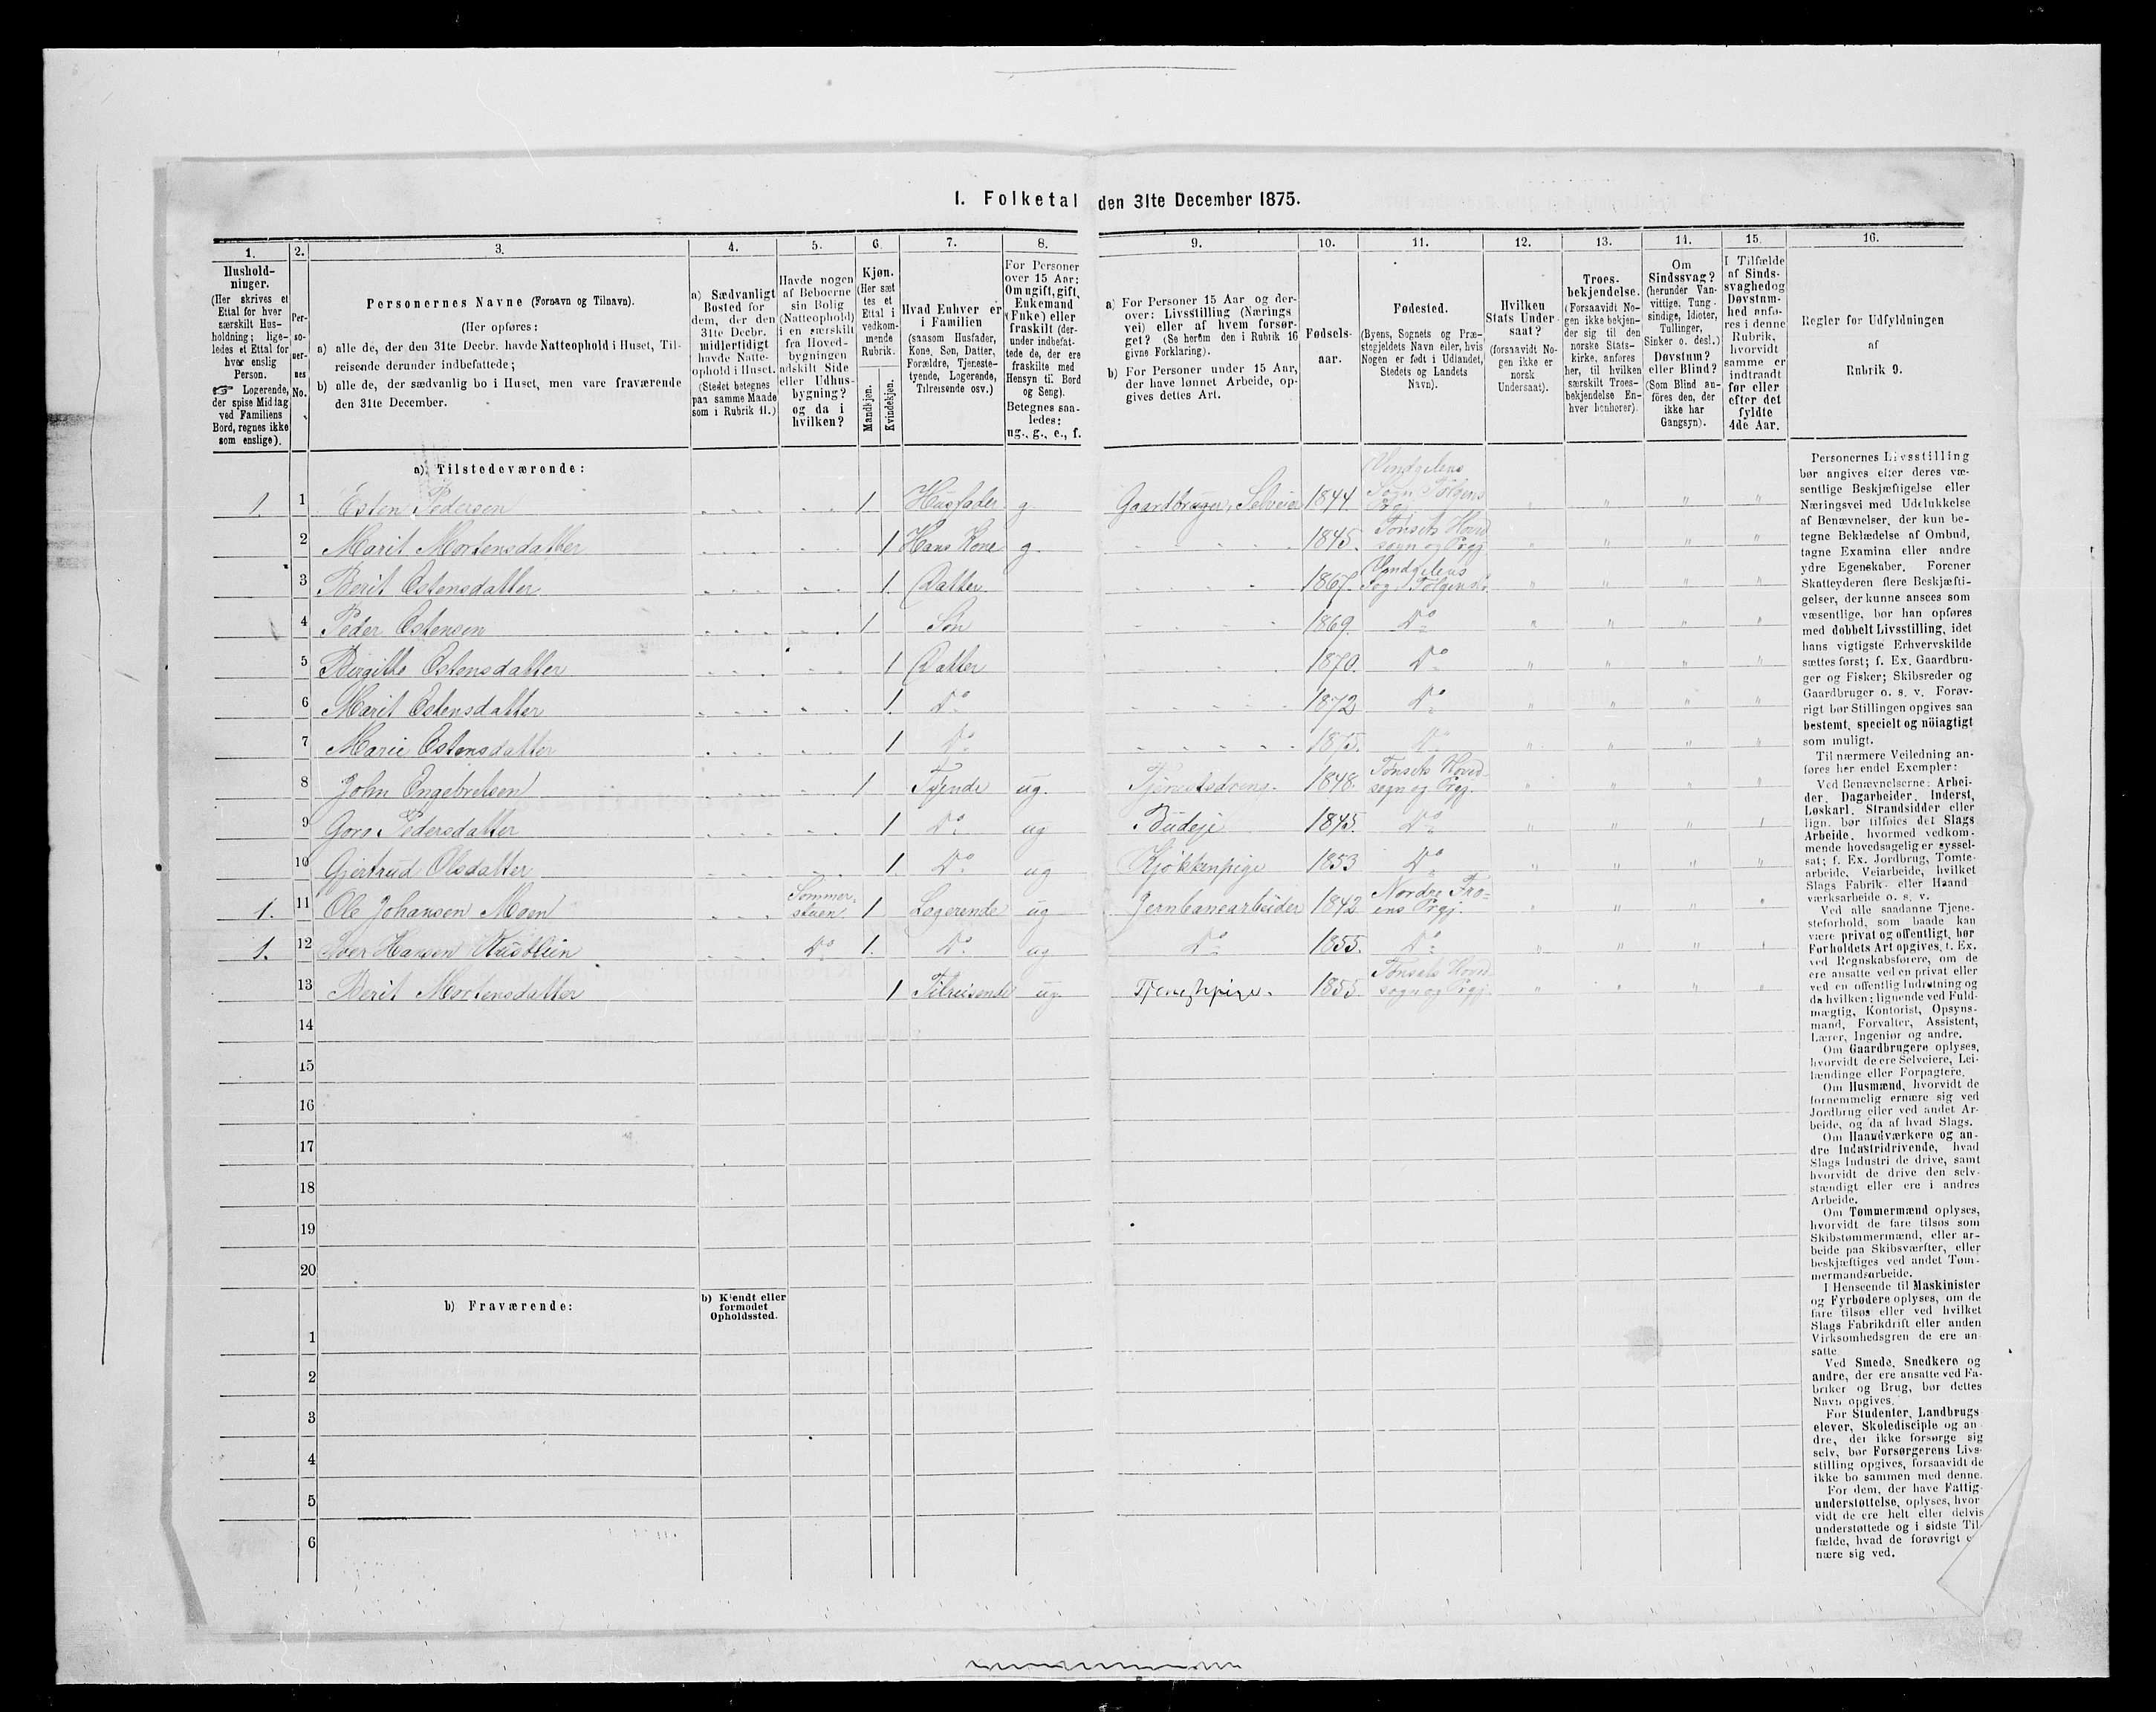 I. Folketal den 31te December 1875.
1. 2. 3. 4. 5. 6. 7. 8. 9. 10. 11. 12. 13. 14. 15. 16.
Hushold-
ninger.
(Her skrives et
Ettal for hver
særskilt Hus-
holdning; lige-
ledes et Ettal for
hver enslig
Person.
☞ Logerende,
der spise Middag
ved Familiens
Bord, regnes ikke
som enslige).
Per-
so-
ner-
nes
No.
Personernes Navne (Fornavn og Tilnavn).
(Her opføres:
a) alle de, der den 31te Decbr. havde Natteophold i Huset, Til-
reisende derunder indbefattede;
b) alle de, der sædvanlig bo i Huset, men vare fraværende
den 31te December.
a) Sædvanligt
Bosted for
dem, der den
31te Decbr.
midlertidigt
havde Natte-
ophold i Huset.
(Stedet betegnes
paa samme Maade
som i Rubrik 11.)
Havde nogen
af Beboerne
sin Bolig
(Natteophold)
i en særskilt
fra Hoved-
bygningen
adskilt Side
eller Udhus-
bygning?
og da i
hvilken?
Kjøn.
(Her sæt
tes et
Ettal i
vedkom-
mende
Rubrik.
Mandkjøn.
Kvindekjøn.
Hvad Enhver er
i Familien
(saasom Husfader,
Kone, Søn, Datter,
Forældre, Tjeneste-
tyende, Logerende,
Tilreisende osv.)
For Personer
over 15 Aar:
Om ugift, gift,
Enkemand
(Enke) eller
fraskilt (der-
under indbefat-
tede de, der ere
fraskilte med
Hensyn til Bord
og Seng).
Betegnes saa-
ledes:
ug., g., e., f.
a) For Personer 15 Aar og der-
over: Livsstilling (Nærings
vei) eller af hvem forsør-
get? (Se herom den i Rubrik 16
givne Forklaring).
b) For Personer under 15 Aar,
der have lønnet Arbeide, op-
gives dettes Art.
Fødsels-
aar.
Fødested.
(Byens, Sognets og Præ-
stegjeldets Navn eller, hvis
Nogen er født i Udlandet,
Stedets og Landets
Navn).
Hvilken
Stats Under-
saat?
(forsaavidt No-
gen ikke er
norsk
Undersaat).
Troes-
bekjendelse.
(Forsaavidt No-
gen ikke bekjen-
der sig til den
norske Stats-
kirke, anføres
her, til hvilken
særskilt Troes-
bekjendelse En-
hver henhører).
Om
Sindssvag?
(herunder Van-
vittige, Tung-
sindige, Idioter,
Tullinger,
Sinker o. desl.)
Døvstum?
eller Blind?
(Som Blind an-
føres den, der
ikke har
Gangsyn).
I Tilfælde
af Sinds-
svaghed og
Døvstum-
hed anfø-
res i denne
Rubrik,
hvorvidt
samme er
indtraadt
før eller
efter det
fyldte
4de Aar.
Regler for Udfyldningen
af
Rubrik 9.
a) Tilstedeværende:
1. 1 Esten Pedersen 1 Husfader g Gaardbruger, Selveier 1844. Vindgelens Sogn Tolgens Prgj
2 Marit Mortensdatter 1 Hans Kone g. 1845. Tønsets Hovd sogn og Prgj
3 Berit Estensdatter 1. Datter 1867. Vindgelens
4 Peder Estensen 1 Søn 1869. Do
5 Birgitte Estensdatter 1 Datter 1870. Do
6 Marit Estensdatter 1. Do 1872 Do
7 Marie Estensdatter 1 Do 1875. Do
8 John Engebretsen 1 Tyende ug. Tjenestedreng 1848. Tønsets Hoved- sogn og Prgj.
9 Goro Pedersdatter 1 Do ug Budeje 1845. Do
10 Gjertrud Olsdatter 1. Do ug Kjøkkenpige 1853 Do
1. 11 Ole Johansen Moen Sommer- stuen 1 Logerende ug Jernbanearbeider 1842 Nordre Fro- ens Prgj.
1. 12 Iver Hansen Do 1. Do ug Do 1855. Do
13 Berit Mortensdatter 1 Tilreisende ug Tjenestepige. 1855 Tønsets Hoved sogn og Prgj.
14
15
16
17
18
19
20
b) Fraværende:
b) Kjendt eller
formodet
Opholdssted.
1
2
3
4
5
6
Personernes Livsstilling
bør angives efter deres væ-
sentlige Beskjæftigelse eller
Næringsvei med Udelukkelse
af Benævnelser, der kun be-
tegne Beklædelse af Ombud,
tagne Examina eller andre
ydre Egenskaber. Forener
Skatteyderen flere Beskjæfti-
gelser, der kunne ansees som
væsentlige, bør han opføres
med dobbelt Livsstilling, idet
hans vigtigste Erhvervskilde
sættes først; f. Ex. Gaardbru-
ger og Fisker; Skibsreder og
Gaardbruger o. s. v. Forøv-
rigt bør Stillingen opgives saa
bestemt, specielt og nøiagtigt
som muligt.
Til nærmere Veiledning an-
føres her endel Exempler:
Ved Benævnelserne: Arbei-
der, Dagarbeider, Inderst,
Løskarl, Strandsidder eller
lign. bør tilføies det Slags
Arbeide, hvormed vedkom-
mende hovedsagelig er syssel-
sat; f. Ex. Jordbrug, Tomte-
arbeide, Veiarbeide, hvilket
Slags Fabrik- eller Haand
værksarbeide o. s. v.
Ved alle saadanne Tjene-
steforhold, som baade kan
være privat og offentligt, bør
Forholdets Art opgives, f. Ex.
ved Regnskabsførere, om de
ere ansatte ved en privat eller
ved en offentlig Indretning og
da hvilken; lignende ved Fuld-
mægtig, Kontorist, Opsyns-
mand, Forvalter, Assistent,
Lærer, Ingeniør og andre.
Om Gaardbrugere oplyses,
hvorvidt de ere Selveiere, Lei-
lændinge eller Forpagtere.
Om Husmænd, hvorvidt de
fornemmelig ernære sig ved
Jordbrug eller ved andet Ar-
beide, og da af hvad Slags.
Om Haandværkere og an-
dre Industridrivende, hvad
Slags Industri de drive, samt
hvorvidt de drive den selv-
stændigt eller ere i andres
Arbeide.
Om Tømmermænd oplyses,
hvorvidt de fare tilsøs som
Skibstømmermænd, eller ar-
beide paa Skibsværfter, eller
beskjæftiges ved andet Tøm-
mermandsarbeide.
I Henseende til Maskinister
og Fyrbødere oplyses, om de
fare tilsøs eller ved hvilket
Slags Fabrikdrift eller anden
Virksomhedsgren de ere an-
satte.
Ved Smede, Snedkere og
andre, der ere ansatte ved Fa-
briker og Brug, bør dettes
Navn opgives.
For Studenter, Landbrugs
elever, Skoledisciple og an-
dre, der ikke forsørge sig
selv, bør Forsørgerens Livs-
stilling opgives, forsaavidt de
ikke bo sammen med denne.
For dem, der have Fattig-
understøttelse, oplyses, hvor
vidt de ere helt eller delvis
understøttede og i sidste Til-
fælde, hvad de forøvrigt
nære sig ved.